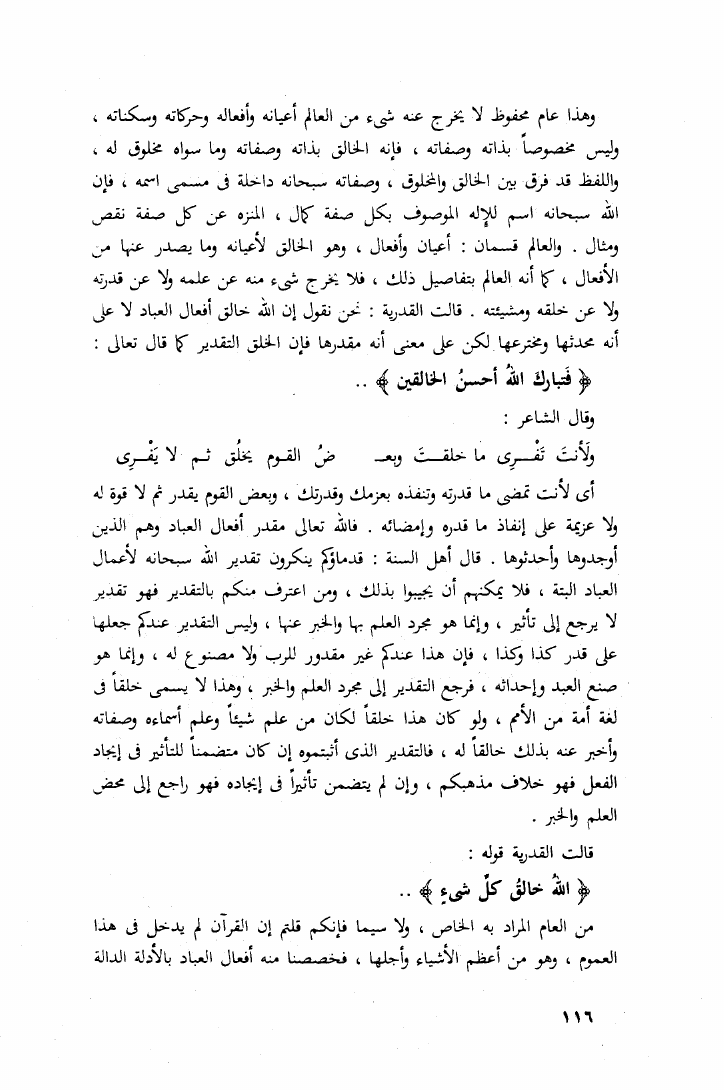 وهذا عام محفوظ لا يخرج عنه شىء من العالم أعيانه وأفعاله وحركاته وسكناته ،
وليس مخصوصاً بذاته وصفاته ، فإنه الخالق بذاته وصفاته وما سواه مخلوق له ،
واللفظ قد فرق بين الخالق والمخلوق ، وصفاته سبحانه داخلة فى مسمى اسمه ، فإن
الله سبحانه اسم للإله الموصوف بكل صفة كمال ، المنزه عن كل صفة نقص
ومثال . والعالم قسمان : أعيان وأفعال ، وهو الخالق لأعيانه وما يصدر عنها من
الأفعال ، كما أنه العالم بتفاصيل ذلك ، فلا يخرج شىء منه عن علمه ولا عن قدرته
ولا عن خلقه ومشيئته . قالت القدرية : نحن نقول إن الله خالق أفعال العباد لا على
أنه محدثها ومخترعها لكن على معنى أنه مقدرها فإن الخلق التقدير كما قال تعالى :
﴿ فَتبارك اللهُ أحسنُ الخالقين ﴾ ..
وقال الشاعر :
ولَأنتَ تَفْــرِى ما خلقــتَ وبعـ ضُ القـوم يخلُق ثـم لا يَفْــرِى
أى لأنت تمضى ما قدرته وتنفذه بعزمك وقدرتك ، وبعض القوم يقدر ثم لا قوة له
ولا عزيمة على إنفاذ ما قدره وإمضائه . فالله تعالى مقدر أفعال العباد وهم الذين
أوجدوها وأحدثوها . قال أهل السنة : قدماؤكم ينكرون تقدير الله سبحانه لأعمال
العباد البتة ، فلا يمكنهم أن يجيبوا بذلك ، ومن اعترف منكم بالتقدير فهو تقدير
لا يرجع إلى تأثير ، وإنما هو مجرد العلم بها والخبر عنها ، وليس التقدير عندكم جعلها
على قدر كذا وكذا ، فإن هذا عندكم غير مقدور للرب ولا مصنوع له ، وإنما هو
صنع العبد وإحداثه ، فرجع التقدير إلى مجرد العلم والخبر ، وهذا لا يسمى خلقاً فى
لغة أمة من الأمم ، ولو كان هذا خلقاً لكان من علم شيئاً وعلم أسماءه وصفاته
وأخبر عنه بذلك خالقاً له ، فالتقدير الذى أثبتموه إن كان متضمناً للتأثير فى إيجاد
الفعل فهو خلاف مذهبكم ، وإن لم يتضمن تأثيراً فى إيجاده فهو راجع إلى محض
العلم والخبر .
قالت القدرية قوله :
﴿ اللهُ خالقُ كلِّ شىءٍ ﴾ ..
من العام المراد به الخاص ، ولا سيما فإنكم قلتم إن القرآن لم يدخل فى هذا
العموم ، وهو من أعظم الأشياء وأجلها ، فخصصنا منه أفعال العباد بالأدلة الدالة
١١٦